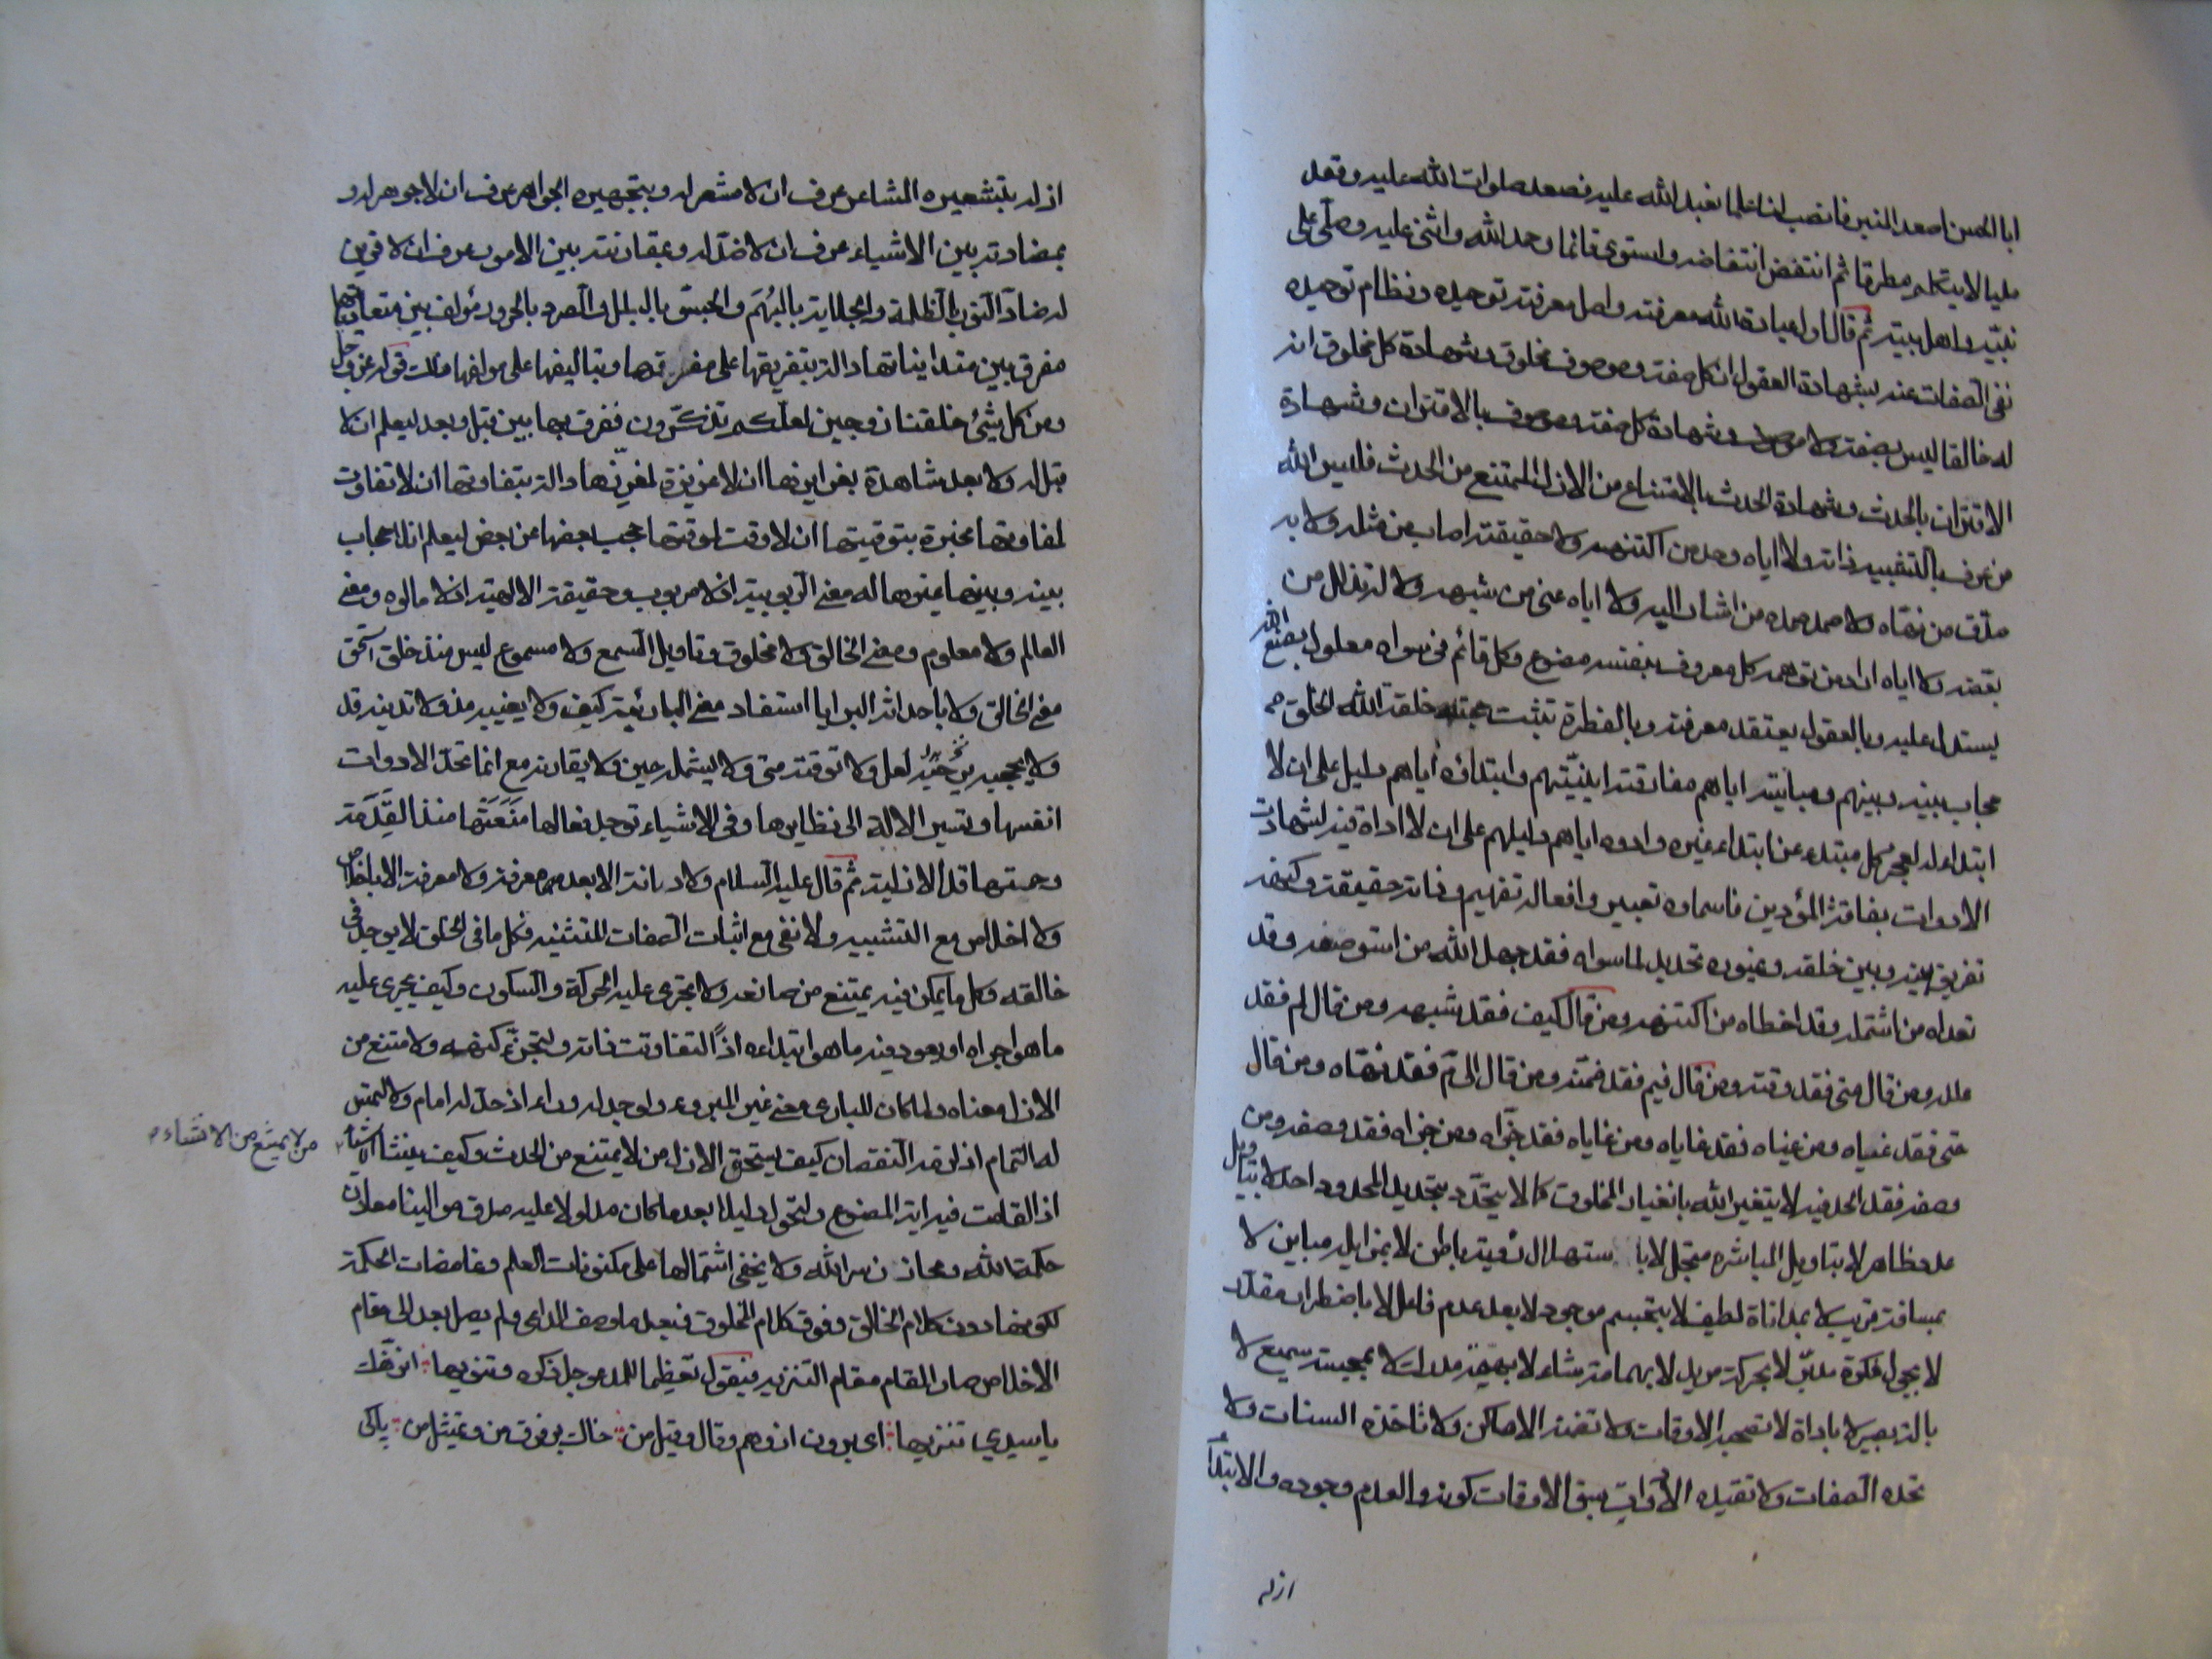 ابا الحسن اصعد المنبر فانصب لنا علما نعبد الله عليه فصعد صلوات الله عليه وقعد
مليا لا يتكلم مطرقا ثم انتفض انتفاضه واستوى قائما وحمد الله واثنى عليه وصلّى على
نبيّه واهل بيته ثم قال اول عبادة الله معرفته واصل معرفته توحيده ونظام توحيده
نفى الصفات عنه بشهادة العقول ان كل صفة وموصوف مخلوق وشهادة كل مخلوق ان
له خالقا ليس بصفة ولا موصوف وشهادة كل صفة وموصوف بالاقتران وشهادة
الاقتران بالحدث وشهادة الحدث بالامتناع من الازل الممتنع من الحدث فليس الله
من عرف بالتشبيه ذاته ولا اياه وحد من اكتنهه ولا حقيقته اصاب من مثله ولا به
صدّق من نهّاه ولا صمد صمده من اشار اليه ولا اياه عنى من شبهه ولا له تذلل من
بعّضه ولا اياه اراد من توهمه كل معروف بنفسه مصنوع وكل قائم فى سواه معلول بصنع الله
يستدل عليه وبالعقول يعتقد معرفته وبالفطرة تثبت حجته خلقة الله الخلق
حجاب بينه وبينهم ومباينته اياهم مفارقته اينيّتهم وابتداؤه اياهم دليل على ان لا
ابتداء له لعجز كل مبتدء عن ابتداء غيره وادوه اياهم دليلهم على ان لا اداة فيه لشهادة
الادوات بفاقة المؤدين فاسماؤه تعبير وافعاله تفهيم وذاته حقيقة وكنهه
تفريق بينه وبين خلقه وغيوره تحديد لما سواه فقد جهل الله من استوصفه وقد
تعداه من اشتمله وقد اخطاه من اكتنهه ومن قال كيف فقد شبهه ومن قال لم فقد
علله ومن قال متى فقد وقته ومن قال فيم فقد ضمّنه ومن قال الى مَ فقد نهّاه ومن قال
حتى فقد غياه ومن غياه فقد غاياه ومن غاياه فقد جزّاه ومن جزاه فقد وصفه ومن
وصفه فقد الحد فيه لا يتغير الله بانغيار المخلوق كما لا يتحدّد بتحديد المحدود احد لا بتاويل
عدد ظاهر لا بتاويل المباشره متجل لا باستهلال رؤية باطن لا بمزايلة مباين لا
بمسافة قريب لا بمداناة لطيف لا بتجسم موجود لا بعد عدم فاعل لا باضطرار مقدّر
لا بجول فكرة مدبّر لا بحركة مريد لا بهمامة شاء لا بهمّة مدرك لا بمجسة سميع لا
بالة بصير لا باداة لا تصحبه الاوقات ولا تضمنه الاماكن ولا تاخذه السنات ولا
تحده الصفات ولا تقيده الادوات سبق الاوقات كونه والعدم وجوده والابتداء
ازله
ازله بتشعيره المشاعر عرف ان لا مشعر له وبتجهيره الجواهر عرف ان لا جوهر له و
بمضادته بين الاشياء عرف ان لا ضدّ له وبمقارنته بين الامور عرف ان لا قرين
له ضادّ النور بالظلمة والجلاية بالبُهَم والجسوّ بالبلل والصرد بالحرور مؤلف بين متعادياتها
مفرق بين متدايناتها دالة بتفريقها على مفرقها وبتاليفها على مولفها ذلك قوله عز وجل
ومن كل شئ خلقنا زوجين لعلكم تذكّرون ففرق بها بين قبل وبعد ليعلم ان لا
قبل له ولا بعد شاهدة بغرايزها ان لا غريزة لمغرزها دالة بتفاوتها ان لا تفاوت
لمفاوتها مخبرة بتوقيتها ان لا وقت لموقتها حجب بعضها عن بعض ليعلم ان لا حجاب
بينه وبينها غيرها له معنى الربوبية اذ لا مربوب وحقيقة الالهية اذ لا مالوه ومعنى
العالم ولا معلوم ومعنى الخالق ولا مخلوق وتاويل السمع ولا مسموع ليس منذ خلق استحق
معنى الخالق ولا باحداثه البرايا استفاد معنى البارئية كيف ولا يغيبه مذ ولا تدنيه قد
ولا يحجبه لعل ولا توقته متى ولا يشمله حين ولا يقارنه مع انما تحدّ الادوات
انفسها وتشير الالة الى نظايرها وفى الاشياء توجد فعالها مَنَعَتْها منذ القِدْمَة
وحمتها قد الازلية ثم قال عليه السلام ولا ديانة الا بعد معرفة ولا معرفة الا باخلاص
ولا اخلاص مع التشبيه ولا نفى مع اثبات الصفات للتثنيه فكل ما فى الخلق لا يوجد فى
خالقه وكل ما يمكن فيه يمتنع من صانعه ولا تجرى عليه الحركة والسكون وكيف يجرى عليه
ما هو اجراه او يعود فيه ما هو ابتداءه اذاً لتفاوتت ذاته ولتجزّء كنهه ولامتنع من
الازل معناه ولما كان للبارى معنى غير المبروء ولو حد له وراء اذ حدّ له امام ولو التمس
له التمام اذ لزمه النقصان كيف يستحق الازل من لا يمتنع من الحدث وكيف ينشا الاشياء
من لا يمتنع من الانشاء
اذا لقامت فيه اية المصنوع ولتحول دليلا بعد ما كان مدلولا عليه
حكمة الله ولا يخفى اشتمالها على مكنونات العلم وغامضات الحكمة
لكونها دون كلام الخالق وفوق كلام المخلوق فبعد ما وصف الداعى ولم يصل بعد الى مقام
الاخلاص صار المقام مقام التنزيه فيقول تعظيما لله عز وجل ذكره وتنزيها
ياسيدي تنزيها